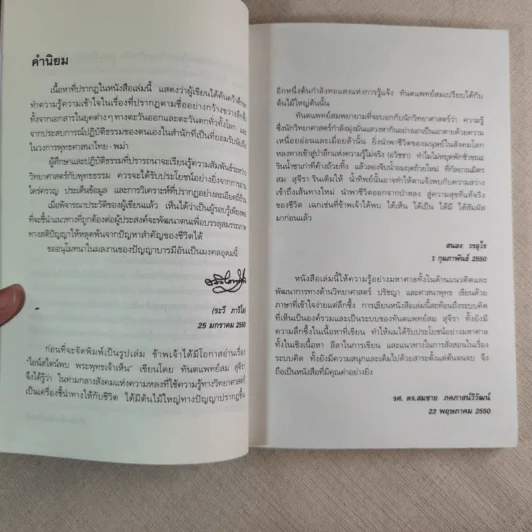 คำนิยม
เนื้อหาที่ปรากฏในหนังสือเล่มนี้ แสดงว่าผู้เขียนได้ค้นคว้าศึกษา
ทำความรู้ความเข้าใจในเรื่องที่ปรากฏตามชื่ออย่างกว้างขวางลึกซึ้ง
ทั้งจากเอกสารในยุคต่าง ๆ ทางตะวันออกและตะวันตกทั่วทั้งโลก และ
จากประสบการณ์ปฏิบัติธรรมของตนเองในสำนักที่เป็นที่ยอมรับนับถือ
ในวงการพุทธศาสนาไทย-พม่า
ผู้ศึกษาและปฏิบัติธรรมที่ปรารถนาจะเรียนรู้ความสัมพันธ์ระหว่าง
วิทยาศาสตร์กับพุทธธรรม ควรจะได้รับประโยชน์อย่างยิ่งจากการอ่าน
ใคร่ครวญ ประเด็นข้อมูล และการวิเคราะห์ที่ปรากฏอย่างละเอียดถี่ถ้วน
เมื่อพิจารณาประวัติของผู้เขียนแล้ว เห็นได้ว่าเป็นผู้รอบรู้เพียงพอ
ที่จะชี้นำแนวทางที่ถูกต้องต่อผู้ประสงค์จะพัฒนาตนเพื่อบรรลุสมรรถภาพ
ทางสติปัญญาให้หลุดพ้นจากปัญหาสำคัญของชีวิตได้
ขออนุโมทนาในผลงานของปัญญาบารมีอันเป็นมงคลอุดมนี้
(ระวี ภาวิไล)
25 มกราคม 2550
ก่อนที่จะจัดพิมพ์เป็นรูปเล่ม ข้าพเจ้าได้มีโอกาสอ่านเรื่อง
"ไอน์สไตน์พบ พระพุทธเจ้าเห็น" เขียนโดย ทันตแพทย์สม สุจีรา
จึงได้รู้ว่า ในท่ามกลางสังคมแห่งความหลงที่ใช้ความรู้ทางวิทยาศาสตร์
เป็นเครื่องชี้นำทางให้กับชีวิต ได้มีต้นไม้ใหญ่ทางปัญญาปรากฏขึ้น
อีกหนึ่งต้นกำลังทอแสงแห่งการรู้แจ้ง ทันตแพทย์สมเปรียบได้กับ
ต้นไม้ใหญ่ต้นนั้น
ทันตแพทย์สมพยายามที่จะบอกกับนักวิทยาศาสตร์ว่า ความรู้
ซึ่งนักวิทยาศาสตร์กำลังมุ่งมั่นแสวงหากันอย่างเอาเป็นเอาตายด้วยความ
เหนื่อยอ่อนและเมื่อยล้านั้น ยิ่งนำพาชีวิตของมนุษย์ในสังคมโลก
หลงทางเข้าสู่ป่าลึกแห่งความรู้ไม่จริง (อวิชชา) ทำไมไม่หยุดพักชั่วขณะ
วินน้ำชาเก่าที่ค้างถ้วยทิ้ง แล้วลองจิบน้ำอมฤตถ้วยใหม่ ที่กัลยาณมิตร
สม สุจีรา รินเติมให้ น้ำทิพย์นั้นอาจทำให้ตาแจ้งพบกับความสว่าง
เข้าถึงเส้นทางใหม่ นำพาชีวิตออกจากป่าหลง สู่ความสุขที่แท้จริง
ของชีวิต เฉกเช่นที่ข้าพเจ้าได้พบ ได้เห็น ได้เป็น ได้มี ได้สัมผัส
มาก่อนแล้ว
สนอง วรอุไร
1 กุมภาพันธ์ 2550
หนังสือเล่มนี้ให้ความรู้อย่างมหาศาลทั้งในด้านแนวคิดและ
พัฒนาการทางด้านวิทยาศาสตร์ ปรัชญา และศาสนาพุทธ เขียนด้วย
ภาษาที่เข้าใจง่ายแต่ลึกซึ้ง การเขียนหนังสือเล่มนี้สะท้อนถึงระบบคิด
ที่เห็นเป็นองค์รวมและเป็นระบบของทันตแพทย์สม สุจีรา ทั้งยังมี
ความลึกซึ้งในเนื้อหาที่เขียน ทำให้ผมได้รับประโยชน์อย่างมหาศาล
ทั้งในเชิงเนื้อหา ลีลาในการเขียน และแนวทางในการส่งสอนในเรื่อง
ระบบคิด ทั้งยังมีความสนุกและเต็มไปด้วยสาระตั้งแต่ต้นจนจบ จึง
ถือเป็นหนังสือที่มีคุณค่าอย่างยิ่ง
รศ. ดร.สมชาย ภคภาสน์วิวัฒน์
23 พฤษภาคม 2550